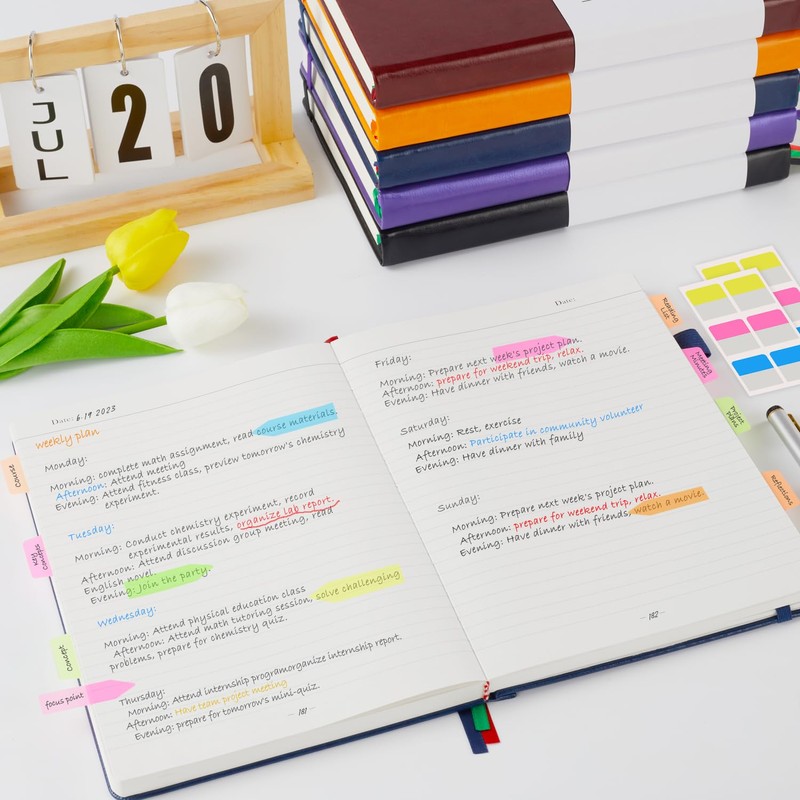 JUL
20
Date: 6.19 2023
weekly plan
Monday:
Morning: complete math assignment, read course materials.
Afternoon: Attend meeting
Evening: Attend fitness class, preview tomorrow's chemistry
experiment.
Tuesday:
Morning: Conduct chemistry experiment, record
experimental results, organize lab report.
Afternoon: Attend discussion group meeting, read
English novel.
Evening: Join the party.
Wednesday:
Morning: Attend physical education class
Afternoon: Attend math tutoring session, solve challenging
problems, prepare for chemistry quiz.
Thursday:
Morning: Attend internship programorganize internship report.
Afternoon: Have team project meeting
Evening: prepare for tomorrow's mini-quiz.
181
Course
Key Concepts
Concept
focus point
Date:
Friday:
Morning: Prepare next week's project plan.
Afternoon: prepare for weekend trip, relax.
Evening: Have dinner with friends, watch a movie.
Saturday:
Morning: Rest, exercise
Afternoon: Participate in community volunteer
Evening: Have dinner with family
Sunday:
Morning: Prepare next week's project plan.
Afternoon: prepare for weekend trip, relax.
Evening: Have dinner with friends, watch a movie.
182
Reading
List
Meeting
Minutes
Project
Plans
Reflections